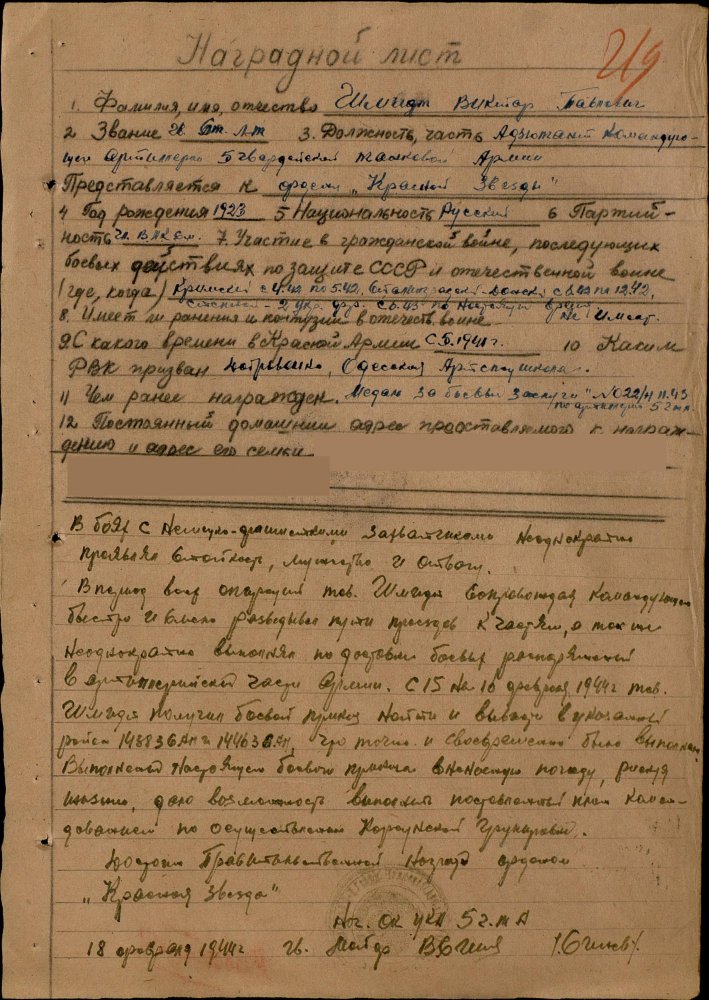 Наградной лист
219
1. Фамилия, имя, отчество Шмидт Виктор Павлович
2 Звание гв. Ст. л-т 3. Должность, часть Адъютант Командую-
щего артиллерии 5 гвардейской танковой Армии
Представляется к ордену „Красной Звезды"
4 Год рождения 1923 5 Национальность Русский 6 Партий-
ность 7. Участие в гражданской войне, последующих
боевых действиях по защите СССР и отечественной войне
(где, когда) Крымский с 4.42 по 5.42, Сталинградский - Донской с 8.42 по 12.42,
Степной - 2 Укр. фр. с 6.43 по настоящ время
8. Имеет ли ранения и контузии в отечеств. войне не имеет.
9. С какого времени в Красной Армии с 5.1941г. 10 Каким
РВК призван Одесская Артспецшкола.
11 Чем ранее награжден. Медаль За боевые заслуги" №022/н 11.43
по артиллерии 5 г.т.а.
12 Постоянный домашний адрес представляемого к награж-
дению и адрес его семьи
В боях с немецко-фашистскими захватчиками неоднократно
проявлял стойкость, мужество и отвагу.
В период всех операций тов. Шмидт сопровождая командующего
быстро и смело разведывал пути проезда к частям, а так же
неоднократно выполнял по доставке боевых распоряжений
в артиллерийские части армии. С 15 на 16 февраля 1944г тов.
Шмидт получил боевой приказ найти и вывести в указанный
район 1438 и 1446 что точно и своевременно было выполнено.
Выполнение настоящего боевого приказа в ненастную погоду, рискуя
жизнью, дало возможность выполнить поставленный план коман-
дованием по осуществлению Корсунской группировки.
Достоин Правительственной награды орденом
„Красная Звезда"
Нач. ОК УКА 5 г.т.А
18 февраля 1944г гв. Майор